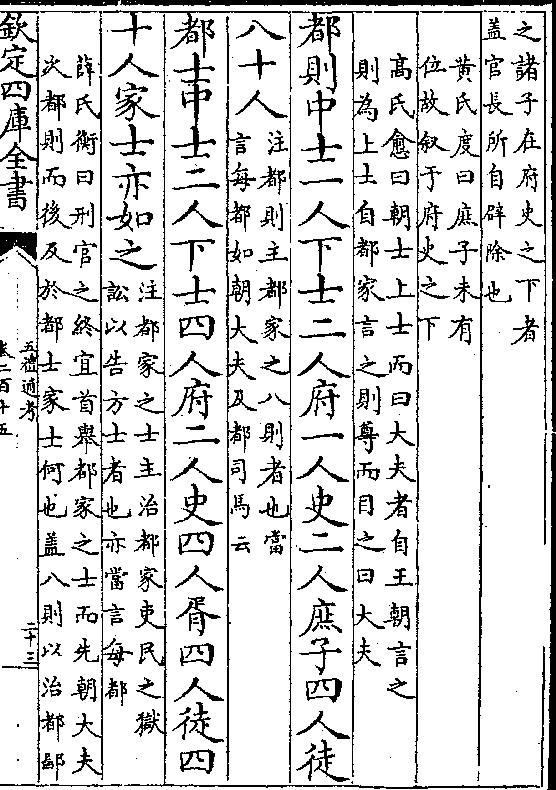 之諸子在府史之下者
蓋官長所自辟除也
黄氏度曰庶子未有
位故叙于府史之下
髙氏愈曰朝士上士而曰大夫者自王朝言之
則為上士自都家言之則尊而目之曰大夫
都則中士一人下士二人府一人史二人庶子四人徒
八十人
注都則主都家之八則者也當
言每都如朝大夫及都司馬云
都士中士二人下士四人府二人史四人胥四人徒四
十人家士亦如之
注都家之士主治都家吏民之獄
訟以告方士者也亦當言每都
薛氏衡曰刑官之終宜首舉都家之士而先朝大夫
次都則而後及於都士家士何也蓋八則以治都鄙
欽定四庫全書
五禮通考
卷二百十五
二十三